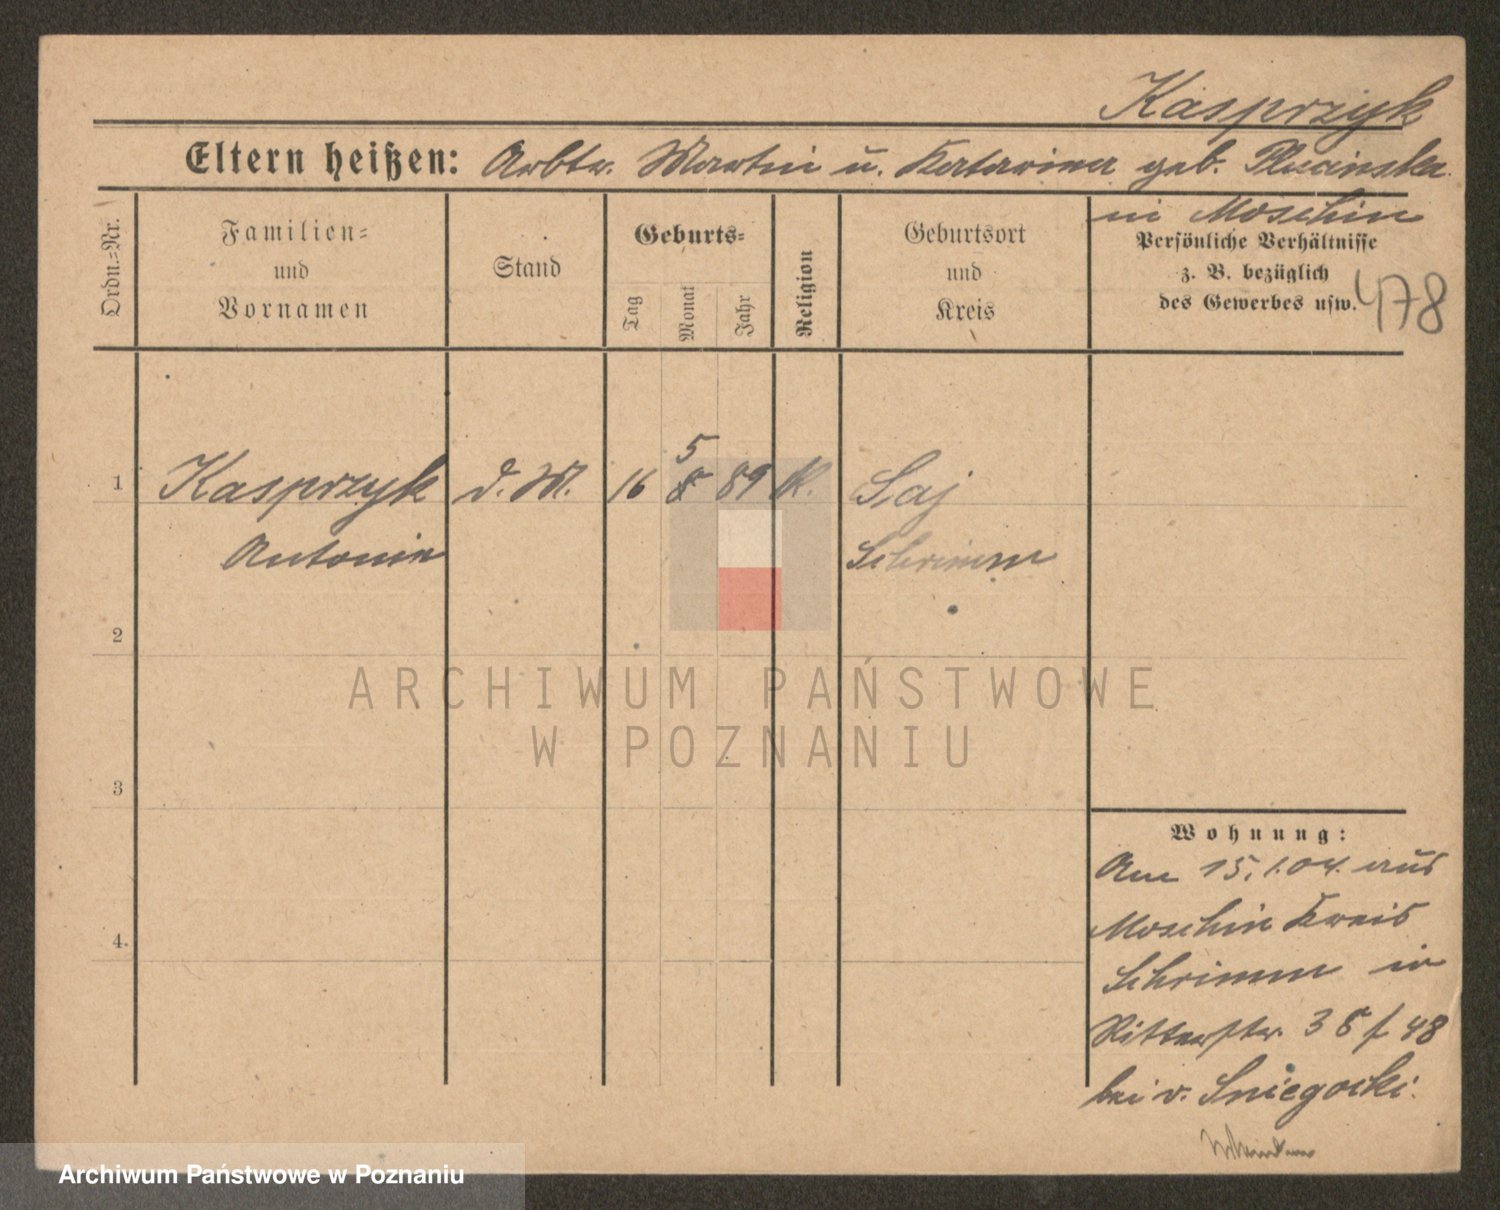 Kasprzyk
Eltern heißen: Arbtr. Martin u. Katarina geb. Plucinska
in Moschin
Ordn.=Nr.
Familien=
und
Vornamen
Stand
Geburts=
Tag
Monat
Jahr
Religion
Geburtsort
und
Kreis
Persönliche Verhältnisse
z. B. bezüglich
des Gewerbes usw.
478
5
1 Kasprzyk d. M. 16 8 89 K. Saj
Antonie Schrimm
2
3
4.
ARCHIWUM PAŃSTWOWE
W POZNANIU
Wohnung:
Am 15.1.04. aus
Moschin Kreis
Schrimm in
Ritterstr. 38 / 48
bei v. Sniegocki.
Archiwum Państwowe w Poznaniu